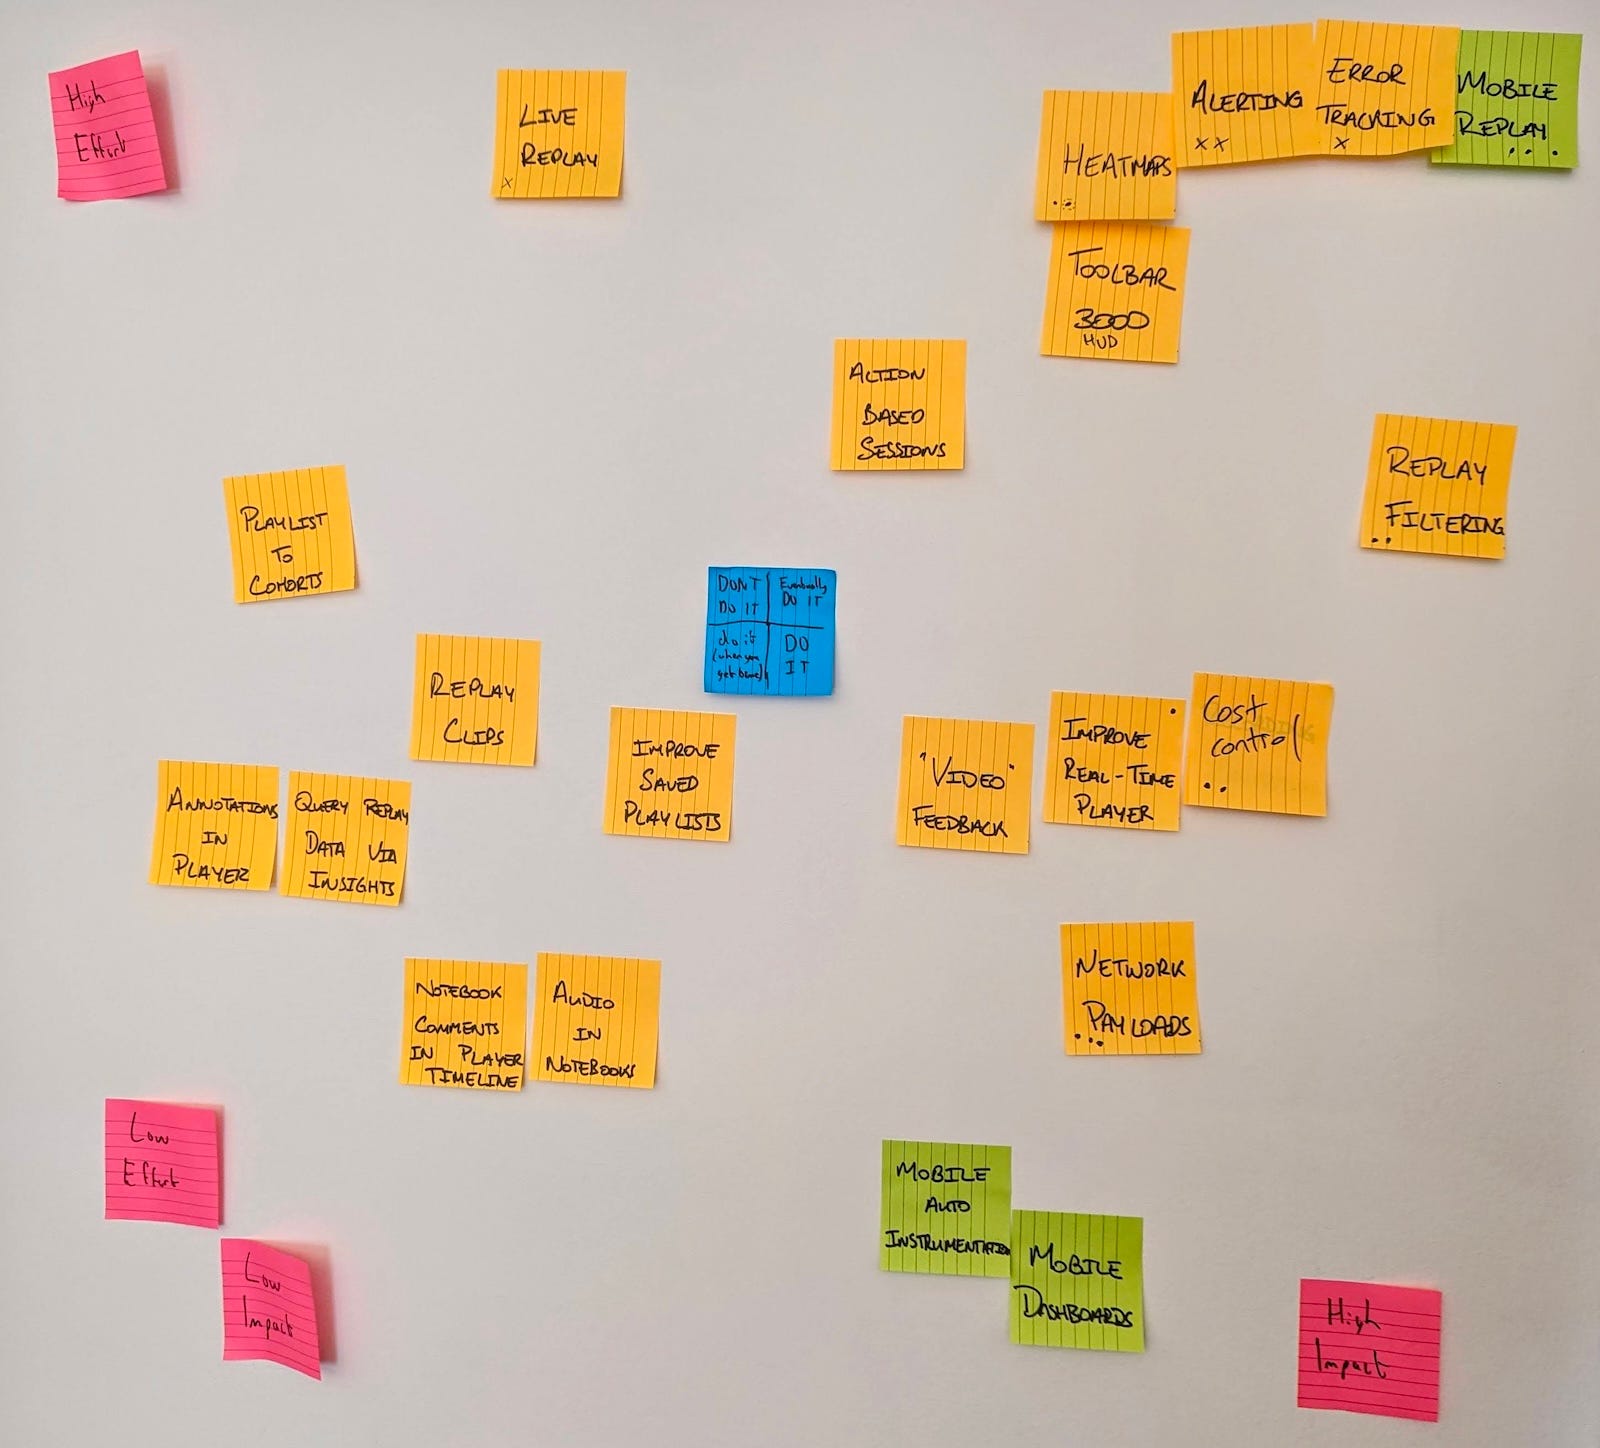 High
Effort
LIVE
REPLAY
x
HEATMAPS
ALERTING
xx
ERROR
TRACKING
x
MOBILE
REPLAY
TOOLBAR
3000
HUD
ACTION
BASED
SESSIONS
REPLAY
FILTERING
PLAYLIST
TO
COHORTS
DONT
DO IT
Eventually
DO IT
do it
(when you
get bored)
DO
IT
REPLAY
CLIPS
IMPROVE
SAVED
PLAYLISTS
"VIDEO"
FEEDBACK
IMPROVE
REAL-TIME
PLAYER
Cost
control
ANNOTATIONS
IN
PLAYER
QUERY REPLAY
DATA VIA
INSIGHTS
NOTEBOOK
COMMENTS
IN PLAYER
TIMELINE
AUDIO
IN
NOTEBOOKS
NETWORK
PAYLOADS
Low
Effort
Low
Impact
MOBILE
AUTO
INSTRUMENTATION
MOBILE
DASHBOARDS
High
Impact